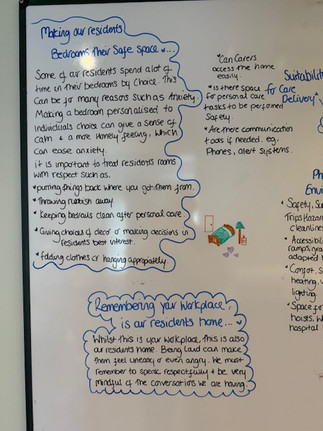 Making our residents
Bedrooms Their Safe space...
Some of our residents spend a lot of
time in their bedrooms by choice. This
Can be for many reasons such as Anxiety.
Making a bedroom personalised to
individuals choice can give a sense of
calm & a more homely feeling, which
can ease anxiety.
it is important to treat residents rooms
with respect such as.
*putting things back where you got them from.
*Throwing rubbish away
* Keeping bedrails clean after personal care.
* Giving choices of decor or making decisions in
residents best interest.
* Folding clothes or hanging appropriately
*Can Carers
access the home
easily.
* is there space
for personal care
tasks to be performed
Safely.
* Are more communication
tools if needed. eg.
Phones, Alert Systems.
Suitability
for Care
Delivery
Ph
Envir
* Safety, Su
Trips Hazard
cleanline
* Accessibil
ramps, gra
adapted
* Comfort, S
heating,
lighting.
* Space for
hoists, W
hospital
Remembering your workplace,
is our residents home...
Whilst this is your workplace, This is also
our residents home. Being loud can make
them feel uneasy or even angry. We must
remember to speak respectfully & be very
mindful of the conversations we are having